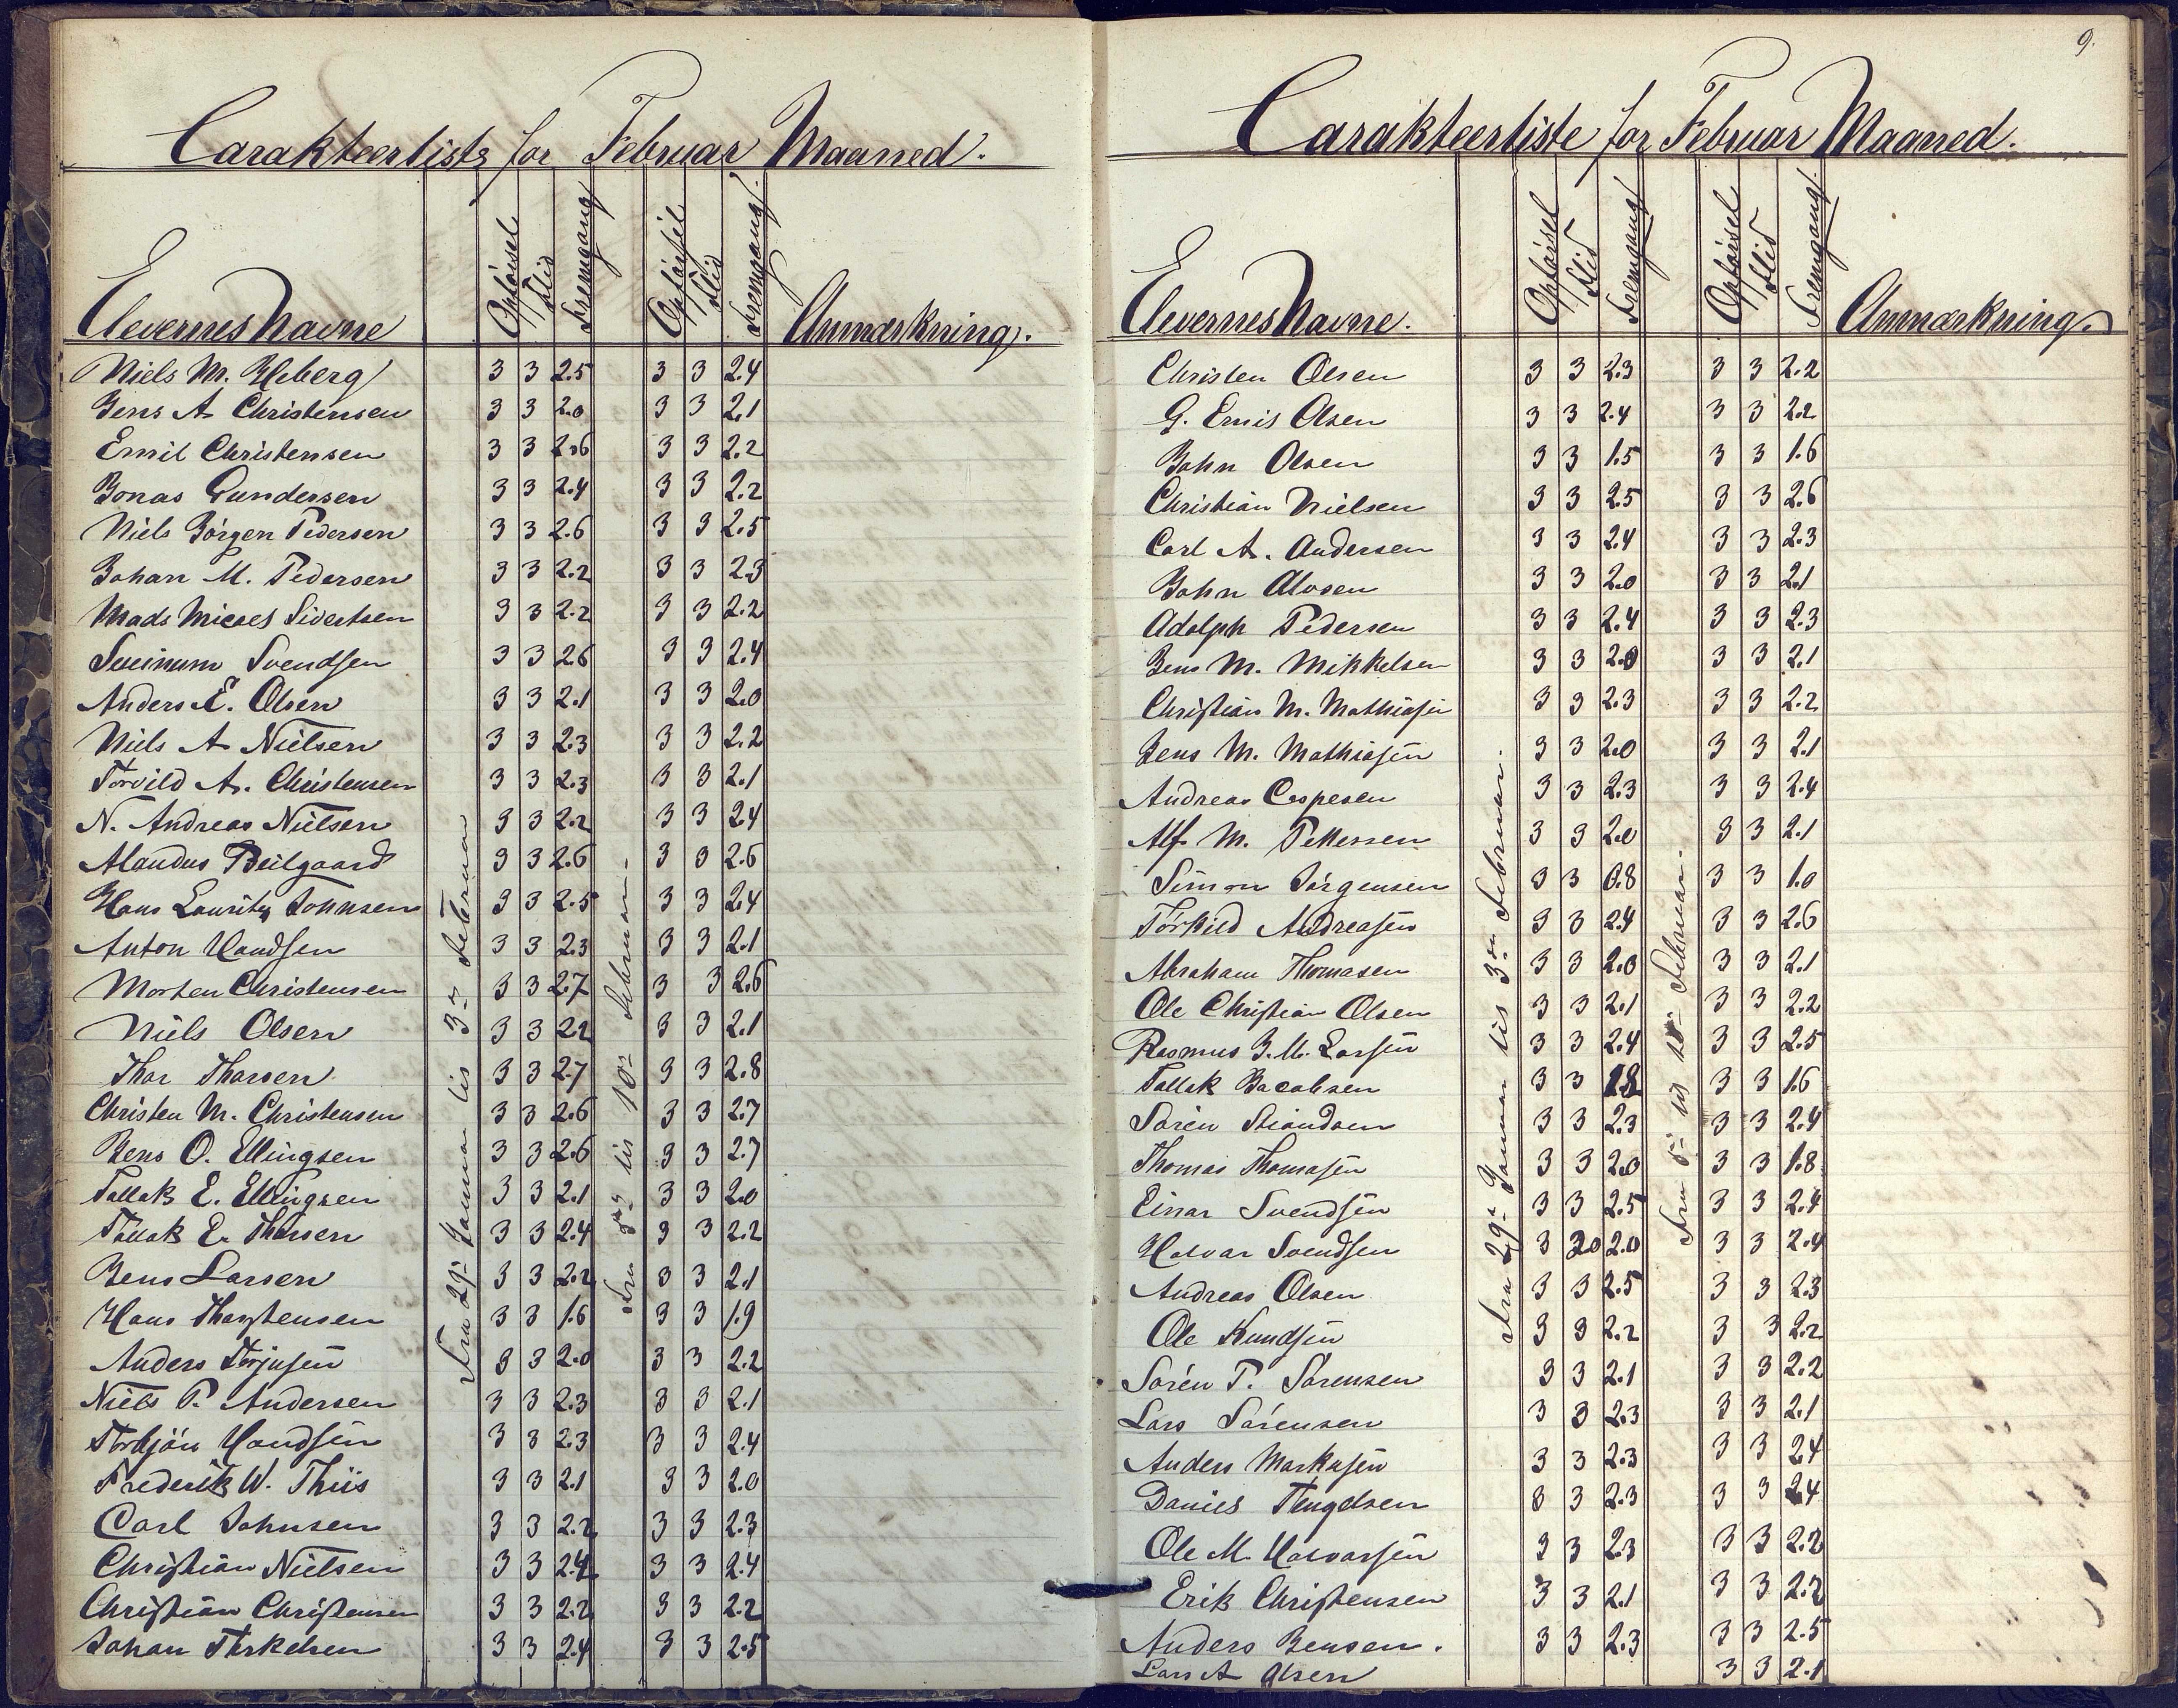 Carakteerliste for Februar Maaned.
Elevernes Navne Opførsel Flid Fremgang Opførsel Flid Fremgang. Anmærkning.
Fra 29de Januar til 3die Februar
Fra 5te til 10de Februar.
Niels M. Heberg 3 3 2.5 3 3 2.4
Jens A Christensen 3 3 2.0 3 3 2.1
Emil Christensen 3 3 2.6 3 3 2.2
Jonas Gundersen 3 3 2.4 3 3 2.2
Niels Jörgen Pedersen 3 3 2.6 3 3 2.5
Johan M. Pedersen 3 3 2.2 3 3 2.3
Mads Micael Sivertsen 3 3 2.2 3 3 2.2
Svendsen 3 3 2.6 3 3 2.4
Anders E. Olsen 3 3 2.1 3 3 2.0
Niels A Nielsen 3 3 2.3 3 3 2.2
Torvild A. Christensen 3 3 2.3 3 3 2.1
N. Andreas Nielsen 3 3 2.2 3 3 2.4
3 3 2.6 3 3 2.6
Hans Lauritz Johnsen 3 3 2.5 3 3 2.4
Anton 3 3 2.3 3 3 2.1
Morten Christensen 3 3 2.7 3 3 2.6
Niels Olsen 3 3 2.2 3 3 2.1
Thor Thorsen 3 3 2.7 3 3 2.8
Christen M. Christensen 3 3 2.6 3 3 2.7
Jens O. Ellingsen 3 3 2.6 3 3 2.7
Tallak E. Ellingsen 3 3 2.1 3 3 2.0
Tallak E. Thorsen 3 3 2.4 3 3 2.2
Jens Larsen 3 3 2.2 3 3 2.1
Hans Thorstensen 3 3 1.6 3 3 1.9
Anders Terjesen 3 3 2.0 3 3 2.2
Niels P. Andersen 3 3 2.3 3 3 2.1
Torbjön 3 3 2.3 3 3 2.4
Frederik W. Thiis 3 3 2.1 3 3 2.0
Carl Johnsen 3 3 2.2 3 3 2.3
Christian Nielsen 3 3 2.4 3 3 2.4
Christian Christensen 3 3 2.2 3 3 2.2
Johan Terkelsen 3 3 2.4 3 3 2.5
9.
Carakteerliste for Februar Maaned.
Elevernes Navne. Opførsel Flid Fremgang Opførsel Flid Fremgang. Anmærkning.
Fra 29de Januar til 3die Februar.
Fra 5te til 10de Februar.
Christen Olsen 3 3 2.3 3 3 2.2
G. Emil Olsen 3 3 2.4 3 3 2.2
John Olsen 3 3 1.5 3 3 1.6
Christian Nielsen 3 3 2.5 3 3 2.6
Carl A. Andersen 3 3 2.4 3 3 2.3
John 3 3 2.0 3 3 2.1
Adolph Pedersen 3 3 2.4 3 3 2.3
Jens M. Mikkelsen 3 3 2.0 3 3 2.1
Christian M. Mathiasen 3 3 2.3 3 3 2.2
Jens M. Mathiasen 3 3 2.0 3 3 2.1
Andreas Caspesen 3 3 2.3 3 3 2.4
Alf M. Pettersen 3 3 2.0 3 3 2.1
Simon Jörgensen 3 3 0.8 3 3 1.0
Törkild Andreasen 3 3 2.4 3 3 2.6
Abraham Thomasen 3 3 2.0 3 3 2.1
Ole Christian Olsen 3 3 2.1 3 3 2.2
Rasmus J. M. Larsen 3 3 2.4 3 3 2.5
Tallak Jacobsen 3 3 1.8 3 3 1.6
Sören 3 3 2.3 3 3 2.4
Thomas Thomasen 3 3 2.0 3 3 1.8
Einar Svendsen 3 3 2.5 3 3 2.4
Halvar Svendsen 3 2.0 2.0 3 3 2.4
Andreas Olsen 3 3 2.5 3 3 2.3
Ole Knudsen 3 3 2.2 3 3 2.2
Sören P. Sörensen 3 3 2.1 3 3 2.2
Lars Sörensen 3 3 2.3 3 3 2.1
Anders Markusen 3 3 2.3 3 3 2.4
Daniel Tengelsen 3 3 2.3 3 3 2.4
Ole M. Halvorsen 3 3 2.3 3 3 2.2
Erik Christensen 3 3 2.1 3 3 2.2
Anders Jensen. 3 3 2.3 3 3 2.5
Lars A Olsen 3 3 2.1